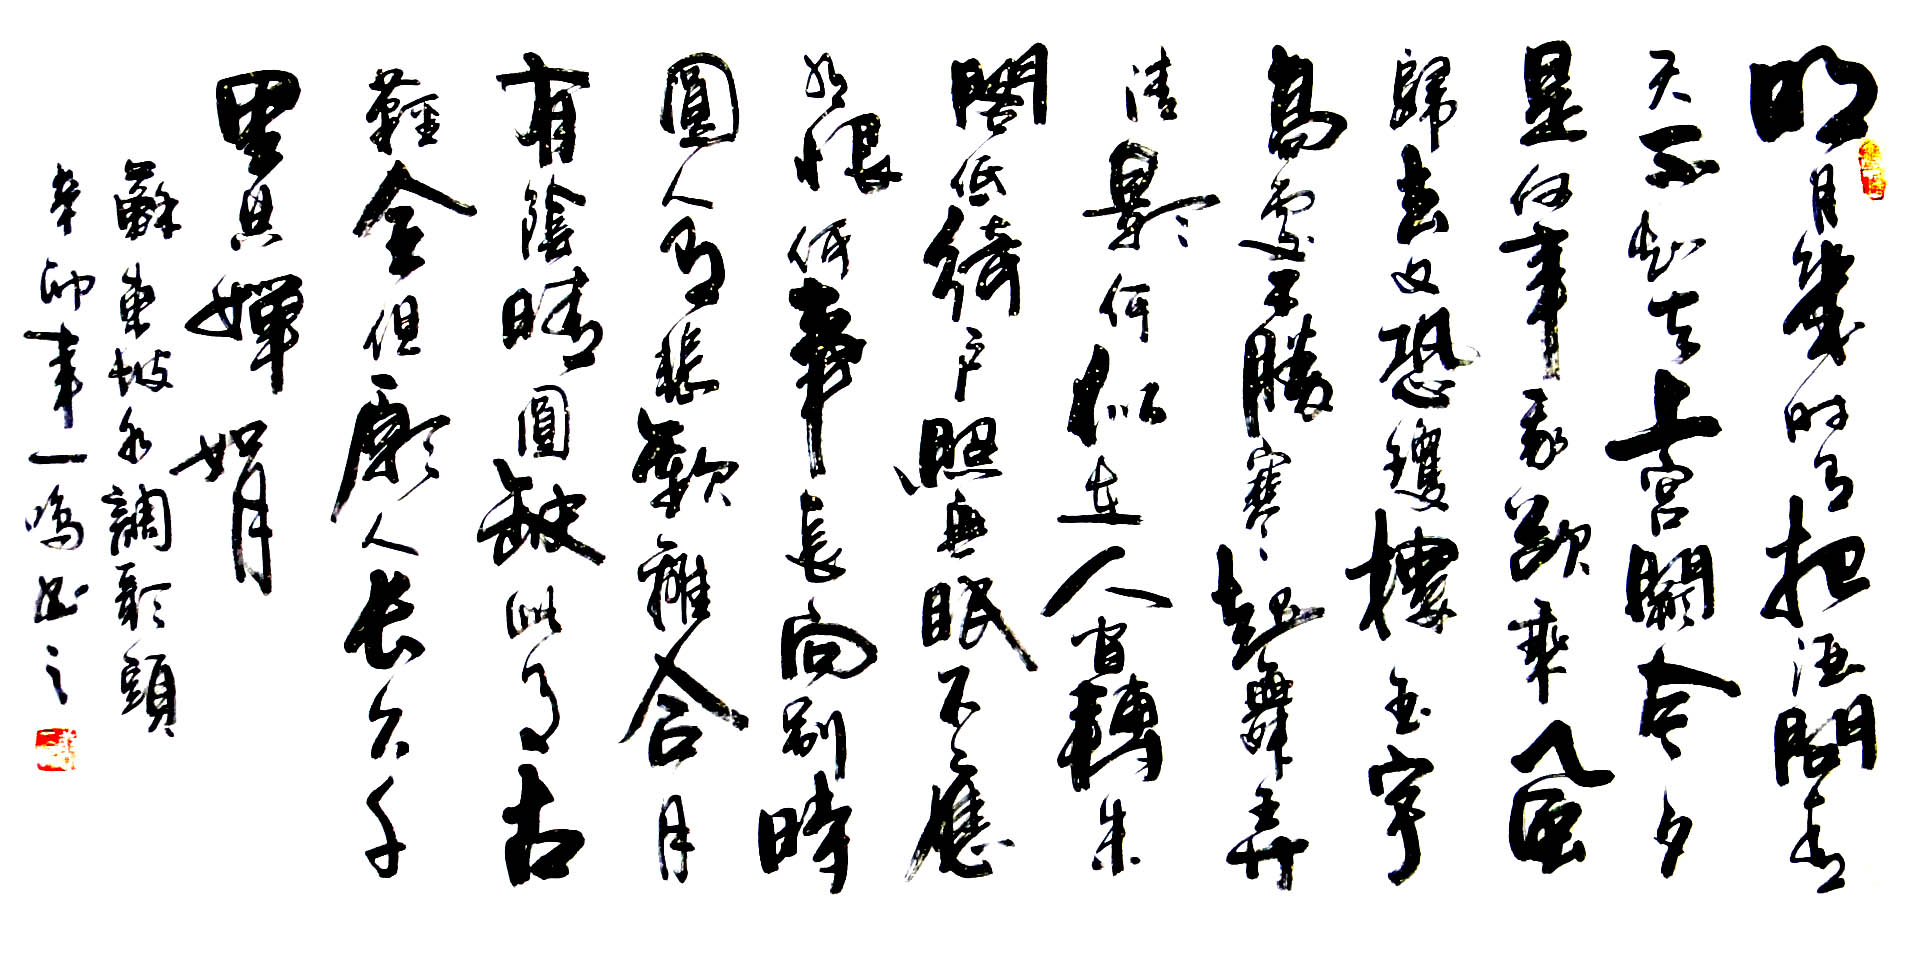 明月幾时有把酒問青
天不知天上宮闕今夕
是何年我欲乘風
歸去又恐瓊樓玉宇
高處不勝寒起舞弄
清影何似在人間轉朱
閣低綺户照無眠不應
有恨何事長向别時
圓人有悲歡離合月
有陰晴圓缺此事古
難全但願人长久千
里共嬋娟
蘇東坡水調歌頭
辛卯年一鳴書之